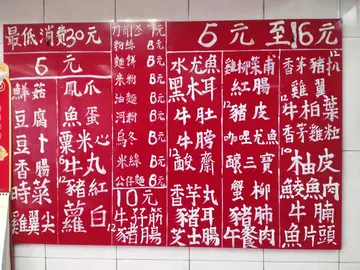 最低消費30元
6元
鮮菇
豆腐
豆卜
香腸
時菜
雞翼尖
鳳爪
魚蛋
粟米心
牛丸
12豬紅
蘿白
元
粉絲 8元
麵餅 8元
米粉 8元
油麵 8元
河粉 8元
烏冬 8元
米線 8元
公仔麵 6元
10元
牛孖筋
12豬腸
5元至16元
水魷魚
黑木耳
牛肚
牛膀
12酸齋
香芋丸
豬耳
芝士腸
雞柳菜甫
紅腸
豬皮
咖哩魷魚
釀三寶
蟹柳
豬肺
午餐肉
香芋豬扒
雞翼
牛柏葉
香菜魚肉
10柚皮
鯪魚肉
牛腩
魚片頭